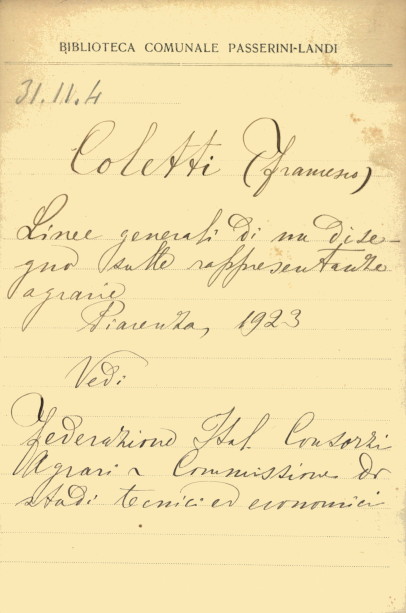 BIBLIOTECA COMUNALE PASSERINI-LANDI
31.11.4
Coletti (Francesco)
Linee generali di un dise-
gno sulle rappresentanze
agrarie
Piacenza, 1923
Vedi
Federazione Ital. Consorzi
Agrari - Commissione di
studi tecnici ed economici